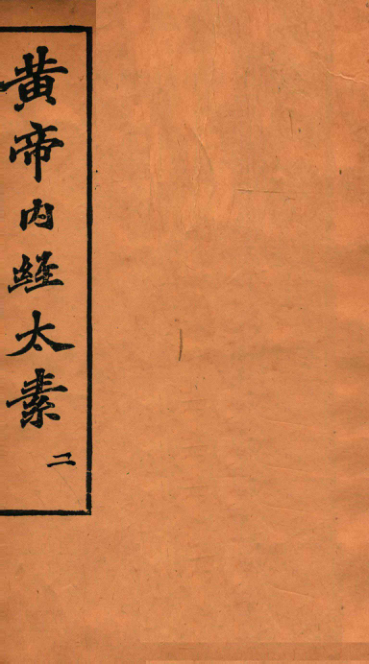 黄帝内經太素
二